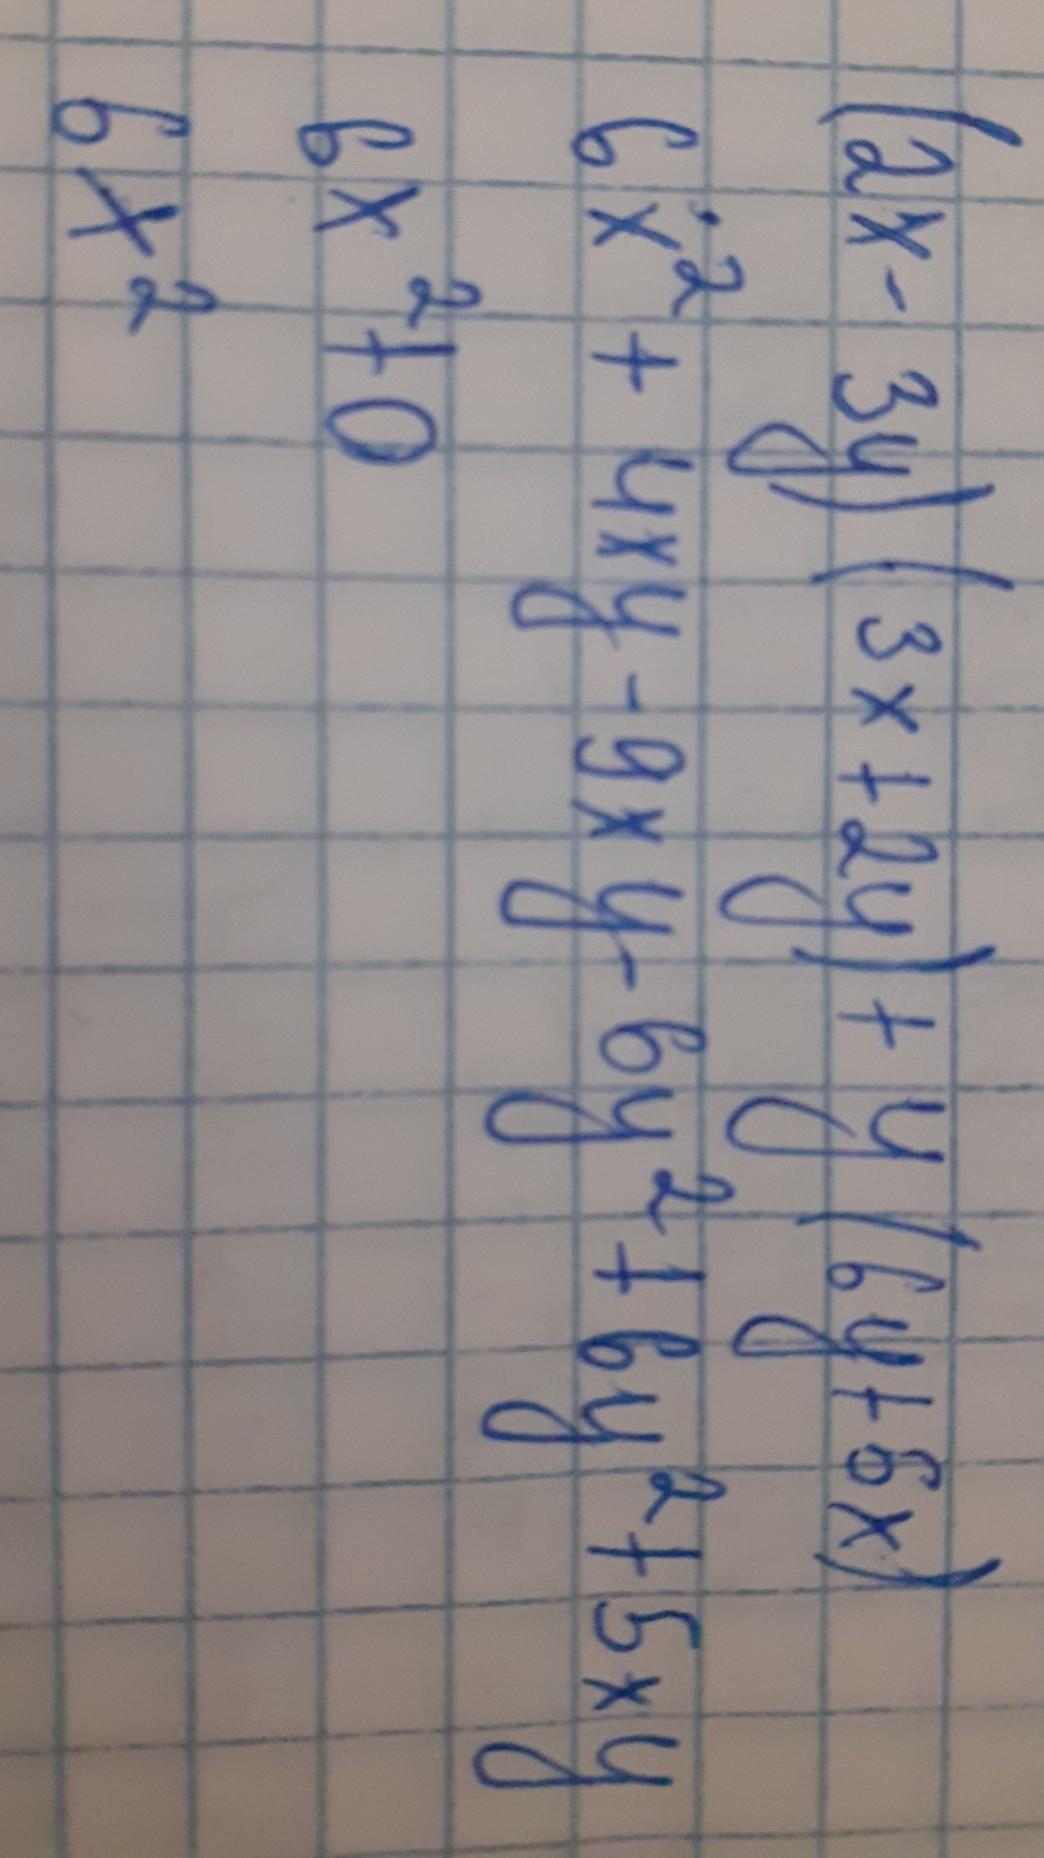 (2x - 3y)(3x + 2y) + y(6y + 5x)
6x² + 4xy - 9xy - 6y² + 6y² + 5xy
6x² + 0
6x²